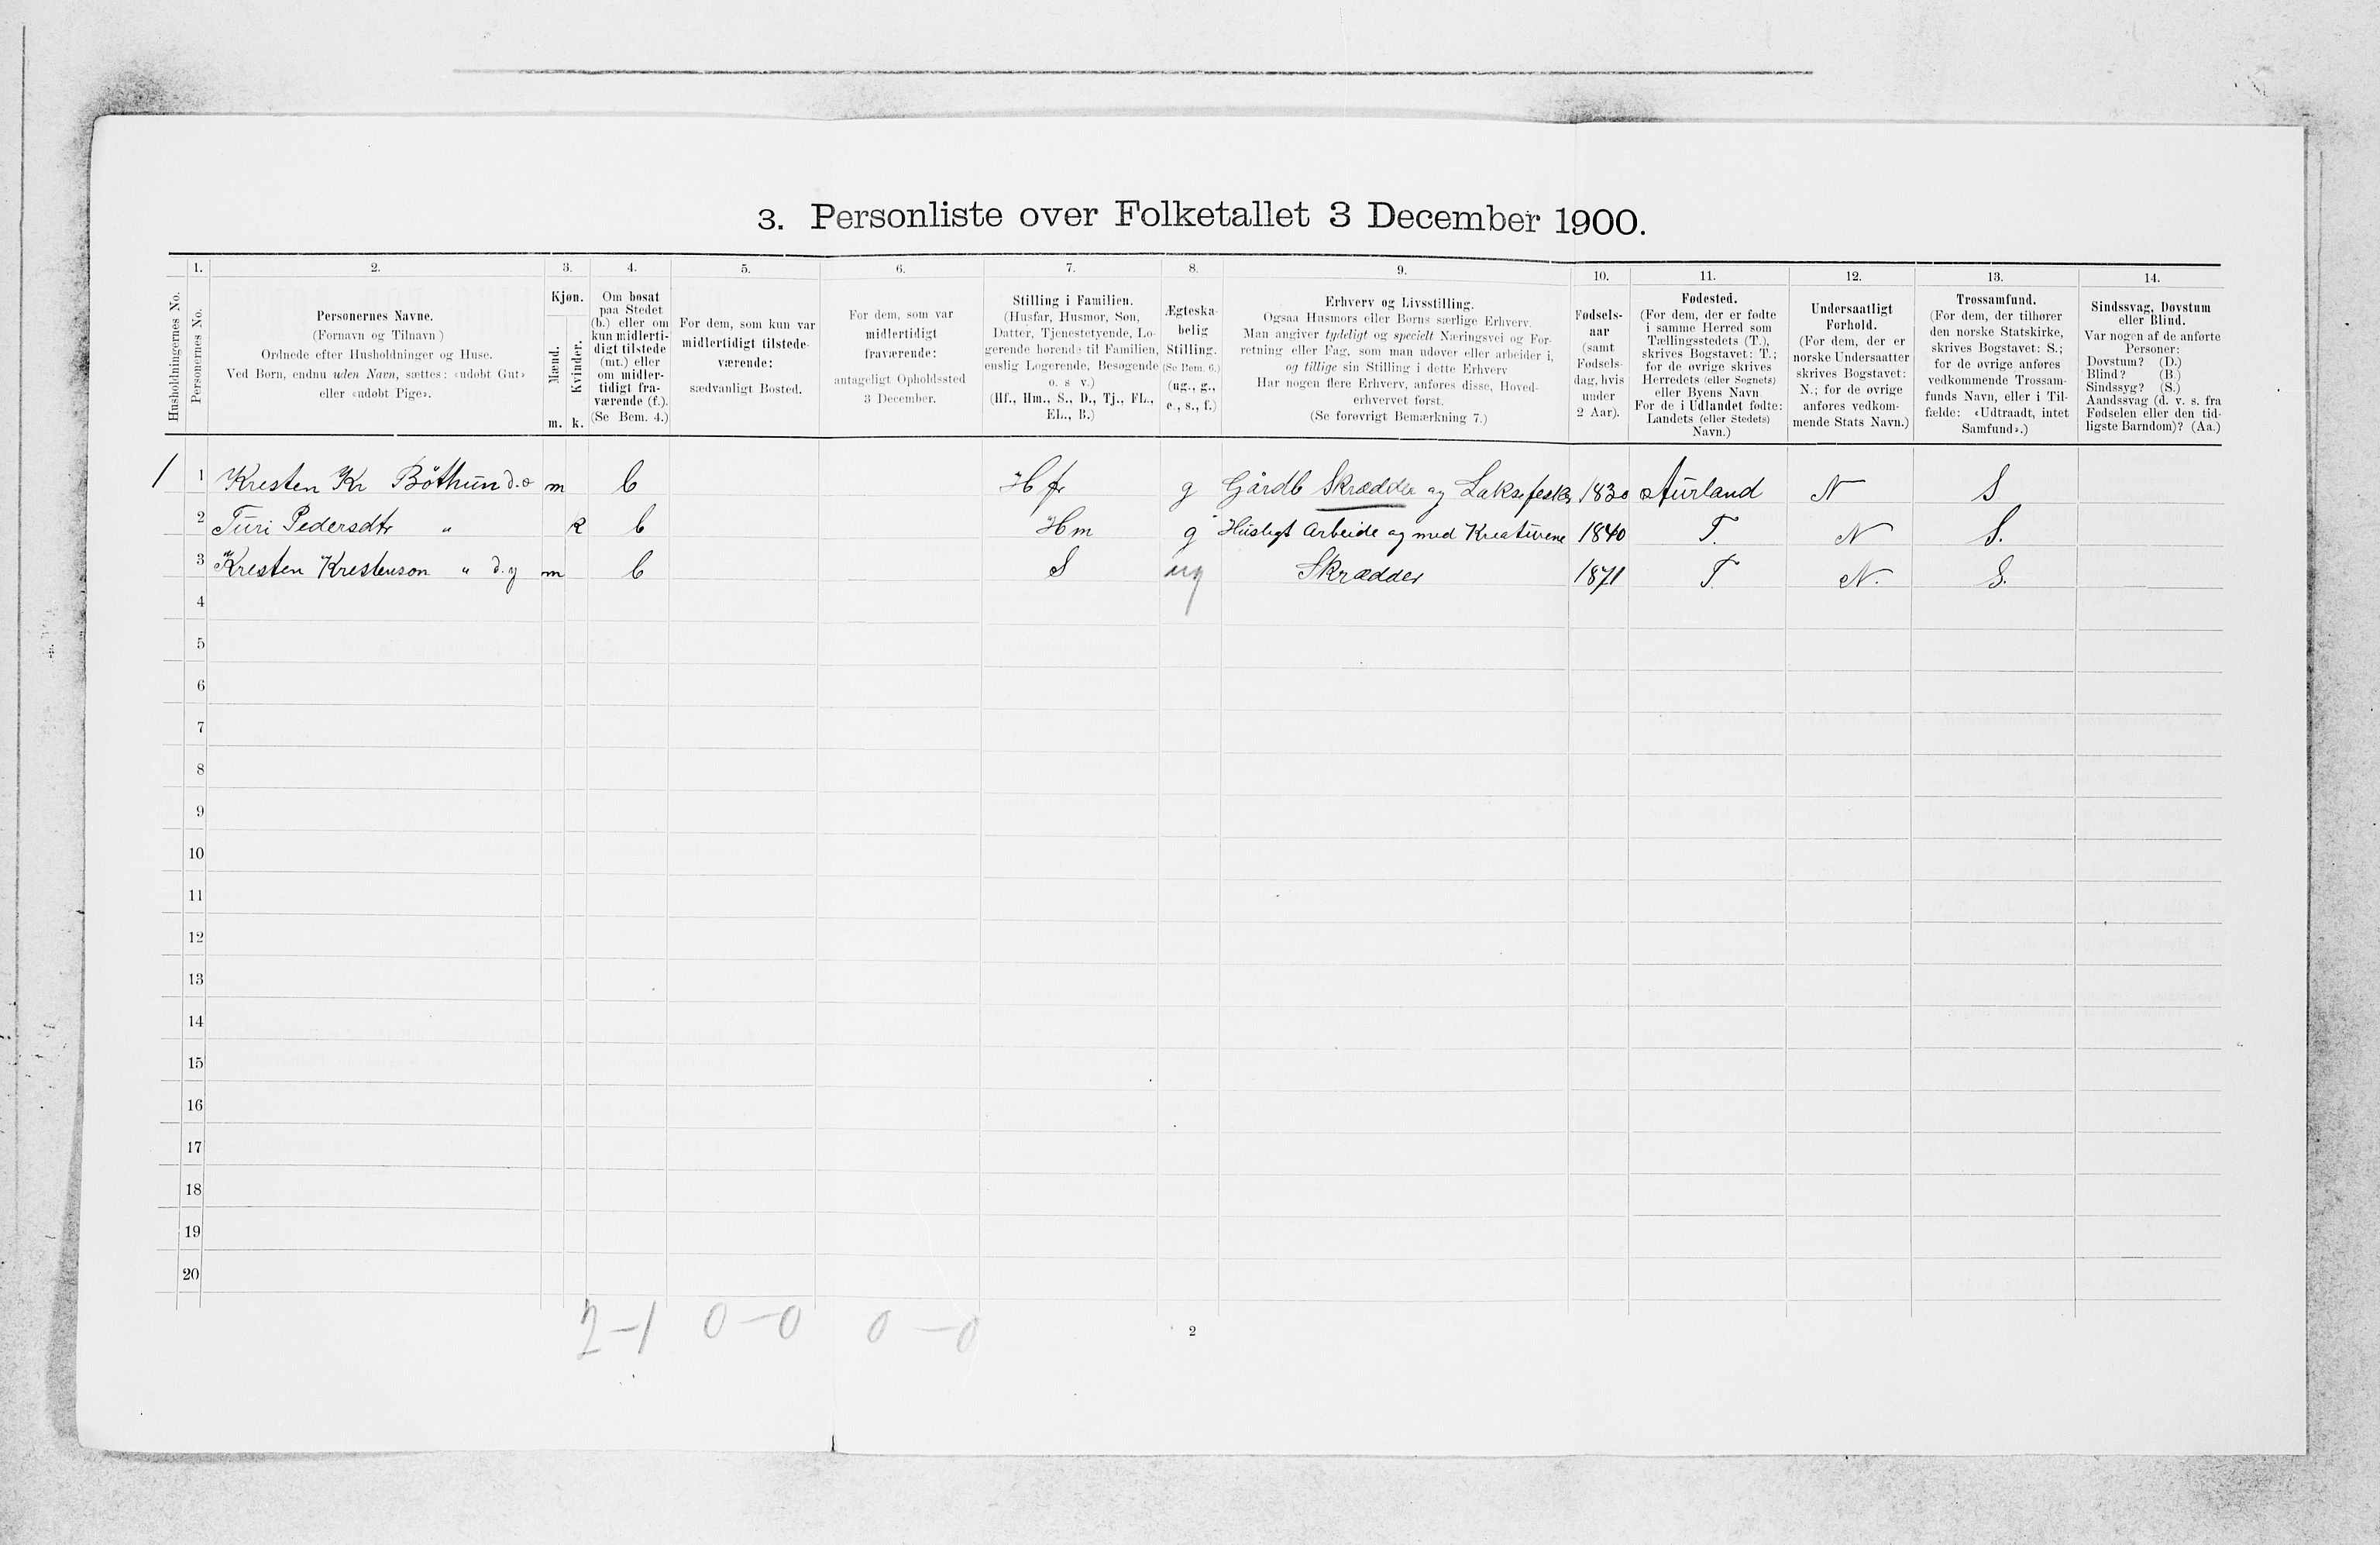 3. Personliste over Folketallet 3 December 1900.
Husholdningernes No.
1. Personernes No.
2. Personernes Navne.
(Fornavn og Tilnavn)
Ordnede efter Husholdninger og Huse.
Ved Børn, endnu uden Navn, sættes: «udøbt Gut»
eller «udøbt Pige».
3. Kjøn.
Mænd. Kvinder.
m. k.
4. Om bosat
paa Stedet
(b.) eller om
kun midlerti-
digt tilstede
(mt.) eller
om midler-
tidigt fra-
værende (f.).
(Se Bem. 4.)
5. For dem, som kun var
midlertidigt tilstede-
værende:
sædvanligt Bosted.
6. For dem, som var
midlertidigt
fraværende:
antageligt Opholdssted
3 December.
7. Stilling i Familien.
(Husfar, Husmor, Søn,
Datter, Tjenestetyende, Lo-
gerende hørende til Familien,
enslig Logerende, Besøgende
o. s v.)
(Hf., Hm., S., D., Tj., FL.,
EL., B.)
8. Ægteska-
belig
Stilling.
(Se Bem. 6.)
(ug., g.,
e., s., f.)
9. Erhverv og Livsstilling.
Ogsaa Husmors eller Børns særlige Erhverv.
Man angiver tydeligt og specielt Næringsvei og For-
retning eller Fag, som man udøver eller arbeider i,
og tillige sin Stilling i dette Erhverv
Har nogen flere Erhverv, anføres disse, Hoved-
erhvervet først.
(Se forøvrigt Bemærkning 7.)
10. Fødsels-
aar
(samt
Fødsels-
dag, hvis
under
2 Aar).
11. Fødested.
(For dem, der er fødte
i samme Herred som
Tællingsstedets (T.),
skrives Bogstavet: T.;
for de øvrige skrives
Herredets (eller Sognets)
eller Byens Navn
For de i Udlandet fødte:
Landets (eller Stedets)
Navn.)
12. Undersaatligt
Forhold.
(For dem, der er
norske Undersaatter
skrives Bogstavet:
N.; for de øvrige
anføres vedkom-
mende Stats Navn.)
13. Trossamfund.
(For dem, der tilhører
den norske Statskirke,
skrives Bogstavet: S.;
for de øvrige anføres
vedkommende Trossam-
funds Navn, eller i Til-
fælde: «Udtraadt, intet
Samfund».)
14. Sindssvag, Døvstum
eller Blind.
Var nogen af de anførte
Personer:
Døvstum? (D.)
Blind? (B.)
Sindssyg? (S.)
Aandssvag (d. v. s. fra
Fødselen eller den tid-
ligste Barndom)? (Aa.)
1 1 Kresten Kr Böthun d. æ m b Hfr g Gårdb Skrædder og Laksefesker 1830 Aurland N S
2 Turi Pedersdtr " k b Hm g Husligt Arbeide og med Kreaturene 1840 T. N S.
3 Kresten Krestenson " d. y m b S ug Skrædder 1871 T N. S.
4
5
6
7
8
9
10
11
12
13
14
15
16
17
18
19
20
2-1 0-0 0-0
2